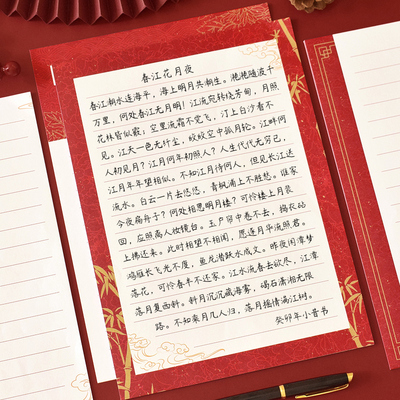 春江花月夜
春江潮水连海平，海上明月共潮生。滟滟随波千
万里，何处春江无月明！江流宛转绕芳甸，月照
花林皆似霰，空里流霜不觉飞，汀上白沙看不
见。江天一色无纤尘，皎皎空中孤月轮。江畔何
人初见月？江月何年初照人？人生代代无穷已，
江月年年望相似。不知江月待何人，但见长江送
流水。白云一片去悠悠，青枫浦上不胜愁。谁家
今夜扁舟子？何处相思明月楼？可怜楼上月裴
回，应照离人妆镜台。玉户帘中卷不去，捣衣砧
上拂还来。此时相望不相闻，愿逐月华流照君。
鸿雁长飞光不度，鱼龙潜跃水成文。昨夜闲潭梦
落花，可怜春半不还家。江水流春去欲尽，江潭
落月复西斜。斜月沉沉藏海雾，碣石潇湘无限
路。不知乘月几人归，落月摇情满江树。
癸卯年小晋书